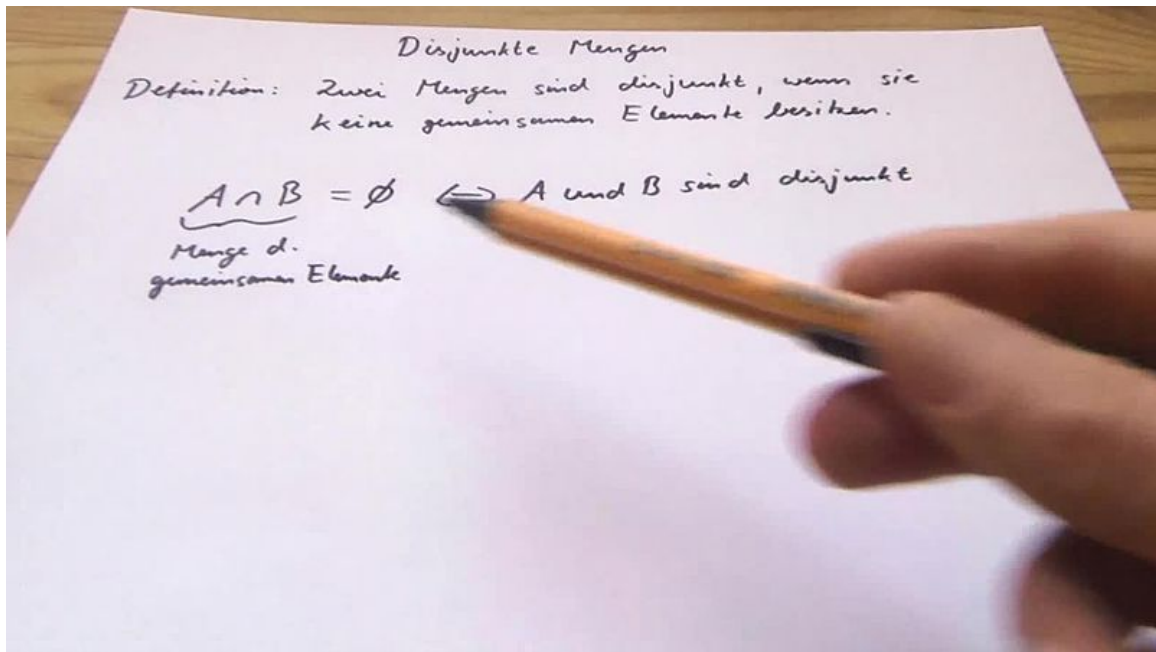 Disjunkte Mengen
Definition: Zwei Mengen sind disjunkt, wenn sie
keine gemeinsamen Elemente besitzen.
A ∩ B = ∅ ⇔ A und B sind disjunkt
Menge d.
gemeinsamen Elemente